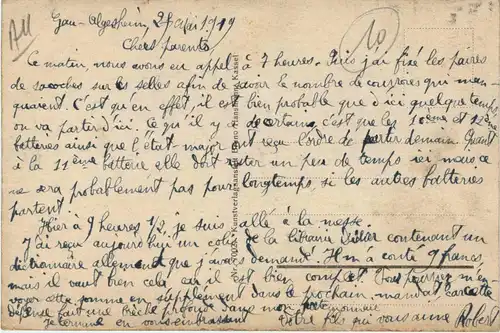 All
10
Gau-Algesheim, 28 Mai 1919
Chers parents
Ce matin, nous avons eu appel à 7 heures. Puis j'ai fixé les paires
de sacoches sur les selles afin de savoir le nombre de courroies qui man-
quaient. C'est qu'en effet, il est bien probable que d'ici quelque temps
on va partir d'ici. Ce qu'il y a de certain, c'est que les 10ème et 12ème
batteries ainsi que l'état major ont reçu l'ordre de partir demain. Quant
à la 11ème batterie elle doit rester un peu de temps ici mais ce
ne sera probablement pas pour longtemps, si les autres batteries
partent.
Hier à 9 heures 1/2, je suis allé à la messe.
J'ai reçu aujourd'hui un colis de la librairie Didier contenant un
dictionnaire allemand que j'avais demandé. Il m'a coûté 9 francs,
mais il vaut bien cela car il est bien complet. Vous pourrez m'en-
voyer cette somme en supplément dans le prochain mandat, car cette
dépense fait une brèche profonde dans mon porte-monnaie.
Je termine en vous embrassant Votre fils qui vous aime Robert
Kunstverlagsanstalt Bruno Hansmann, Cassel